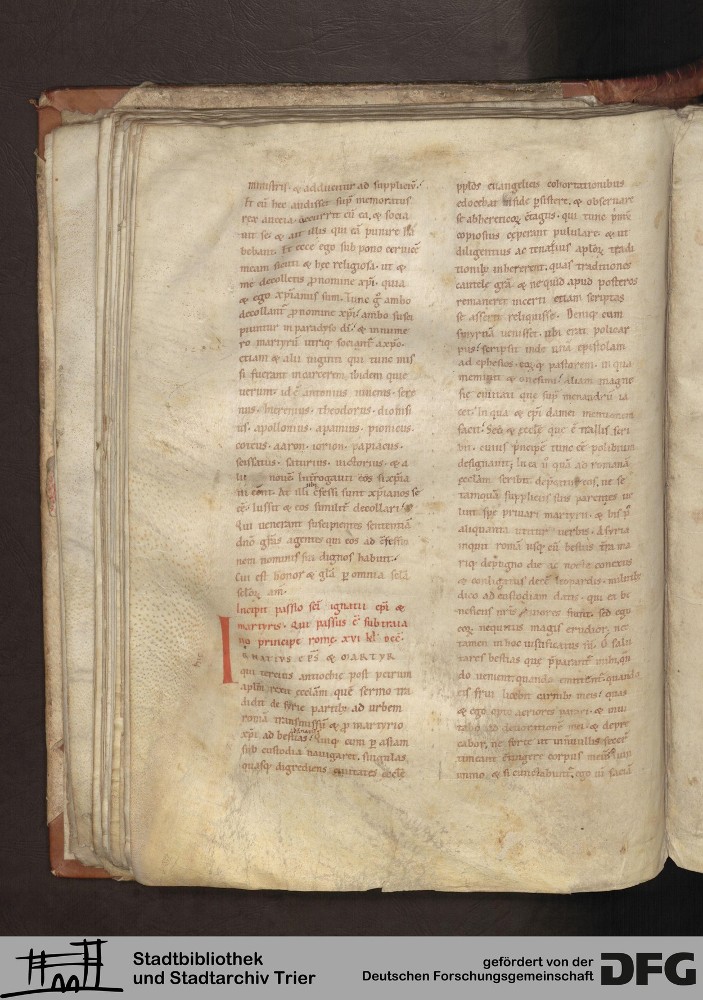 ministris · & adducitur ad suppliciū.
Et cū hec audisset sup̄ memoratus
rex
& ait illis qui eā punire
Et ecce ego sub pono ceruicē
meam sicuti & hec religiosa · ut &
me decolletis ꝓ nomine xp̄i · quia
& ego xp̄ianus sum. Tunc g̊ ambo
decollant̄ ꝓ nomine xp̄i · ambo susci
piuntur in paradyso dī · & in nume
ro martyrū utriq; sociant̄ a xp̄o ·
etiam & alii uiginti qui tunc mis
si fuerant in carcerem, ibidem quie
uerunt · id ē antonius
nus · hireneus · theodorus · dionisi
us · apollonius · apamius · pionicus ·
coteus · aaron · iorion · papiacus ·
saturus · uictorius · & a
lii nouē Interrogauit eos si xp̄ia
ni eēnt. At illi ubi cfessi sunt xp̄ianos se
eē · Iussit & eos similit̄ decollari.
Qui uenerant suscipientes sententiā
dn̄o gr̄as agentes qui eos ad cfessio
nem nominis sui dignos habuit ·
Cui est honor & gl̄a p̱ omnia sc̄la
sc̄loꝝ am̄.
Incipit passio sc̄i ignatii ep̄i &
martyris. Qui passus ē sub traia
no principe rome · xvi kl̄ dec̄ ·
IGNATIVS EP̄S & MARTYR
qui tertius antiochie post petrum
apl̄m rexit eccl̄am quē sermo tra
didit de syrie partib; ad urbem
romā transmissū & ꝓ martyrio
xp̄i ad bestias damnatū. Quiq; cum p̱ asiam
sub custodia nauigaret, singulas
quasq; digrediens ciuitates eccl̄e
ppl̄os euangelicis cohortationibus
edocebat in fide p̱sistere, & obseruare
se ab hereticoꝝ ctagiis · qui tunc
copiosius ceperant pululare · & ut
diligentius ac tenatius apl̄oꝝ tradi
tionib; inhererent, quas traditiones
cautele gr̄a & ne quid apud posteros
remaneret incerti etiam scriptas
se asserit reliquisse. Deniq; cum
smyrnā uenisset · ubi erat policar
pus · scripsit inde unā epistolam
ad ephesios · eoꝝ q; pastorem · in qua
meminit & onesimi · aliam magne
sie ciuitati que sup̄ menandrū ia
cet · In qua & ep̄i damei mentionem
facit · Sed & eccl̄e que ē trallis scri
bit · cuius p̄ncipē tunc eē polibium
designauit, In ea ū quā ad romanā
eccl̄am scribit dep̄catur eos, ne se
tamquā suppliciis suis parcentes ue
lint spe priuari martyrii · & his p̄
aliquanta utitur uerbis · A syria
inquit romā usq; cū bestiis
depugno die ac nocte conexus
& conligatus decē leopardis · militib;
dico ad custodiam datis · qui ex be
neficiis nr̄is seuiores fiunt · sed ego
eoꝝ nequitiis magis erudior, nec
tamen in hoc iustificatus sū · O salu
tares bestias que p̄parant̄ mihi, quā
do uenient, quando emittent̄ · quando
eis frui licebit carnib; meis · quas
& ego opto acriores parari · & inui
tabo ad deuorationē mei · & depre
cabor, ne forte ut in nonnullis fecer̄
timeant ctingere corpus meū ·
immo, & si cunctabunt̄, ego uī faciā
Stadtbibliothek
und Stadtarchiv Trier
gefördert von der
Deutschen Forschungsgemeinschaft
DFG